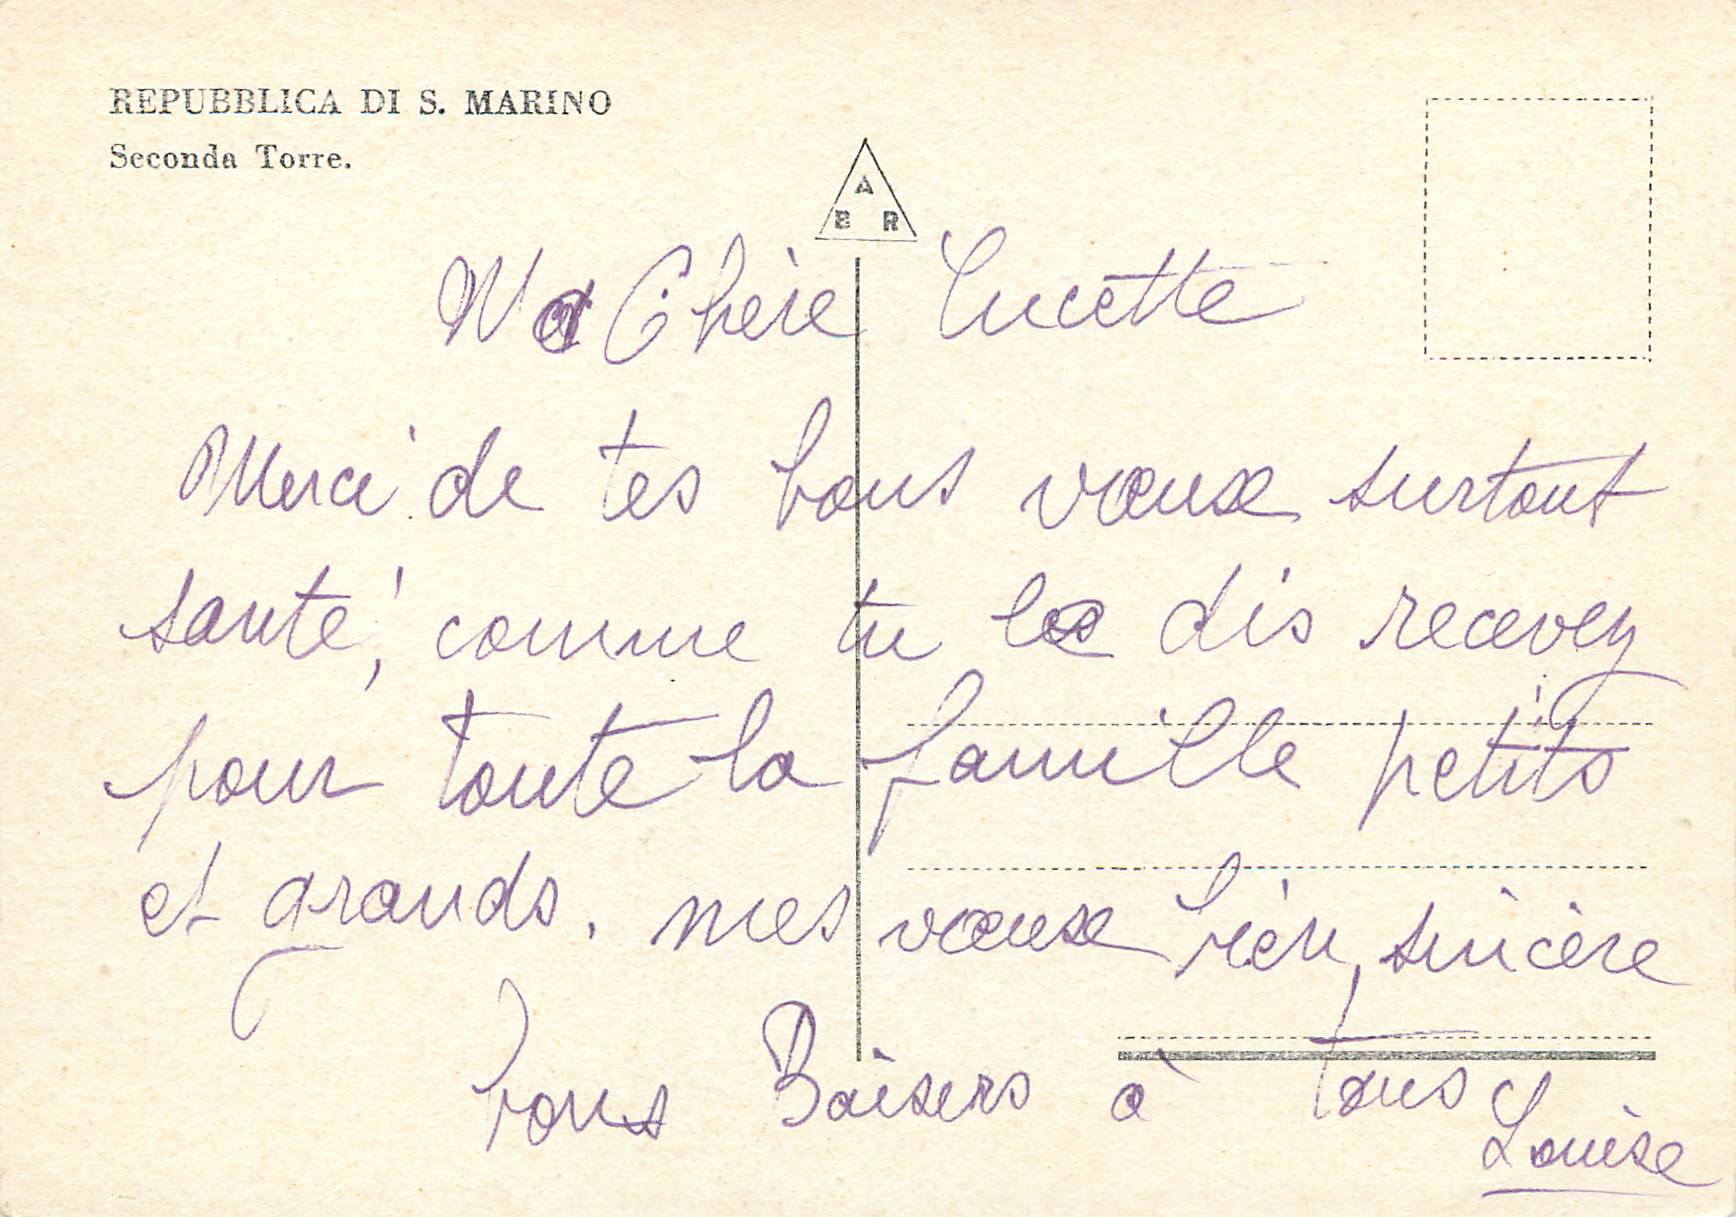 REPUBBLICA DI S. MARINO
Seconda Torre.
A
B R
Ma Chère Lucette
Merci de tes bons vœux surtout
santé, comme tu le dis recevez
pour toute la famille petits
et grands. mes vœux bien sincère
bons Baisers à tous
Louise